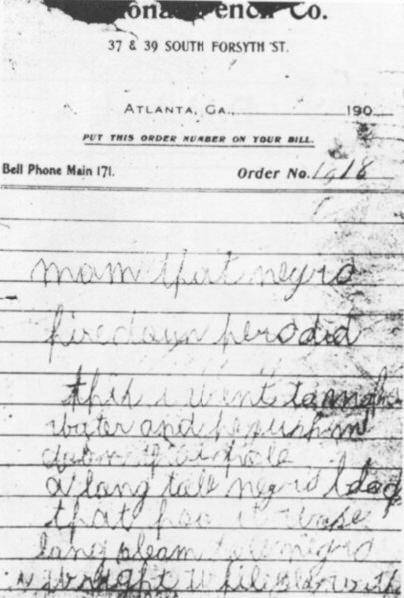 Pencil Co.
37 & 39 SOUTH FORSYTH ST.
ATLANTA, GA., 190
PUT THIS ORDER NUMBER ON YOUR BILL.
Bell Phone Main 171. Order No. 1018
mam that negro
hire doun here did
this i went to make
water and he push me
doun that hole
a long tall negro black
that hoo it wase
long sleam tall negro
i wright while play with